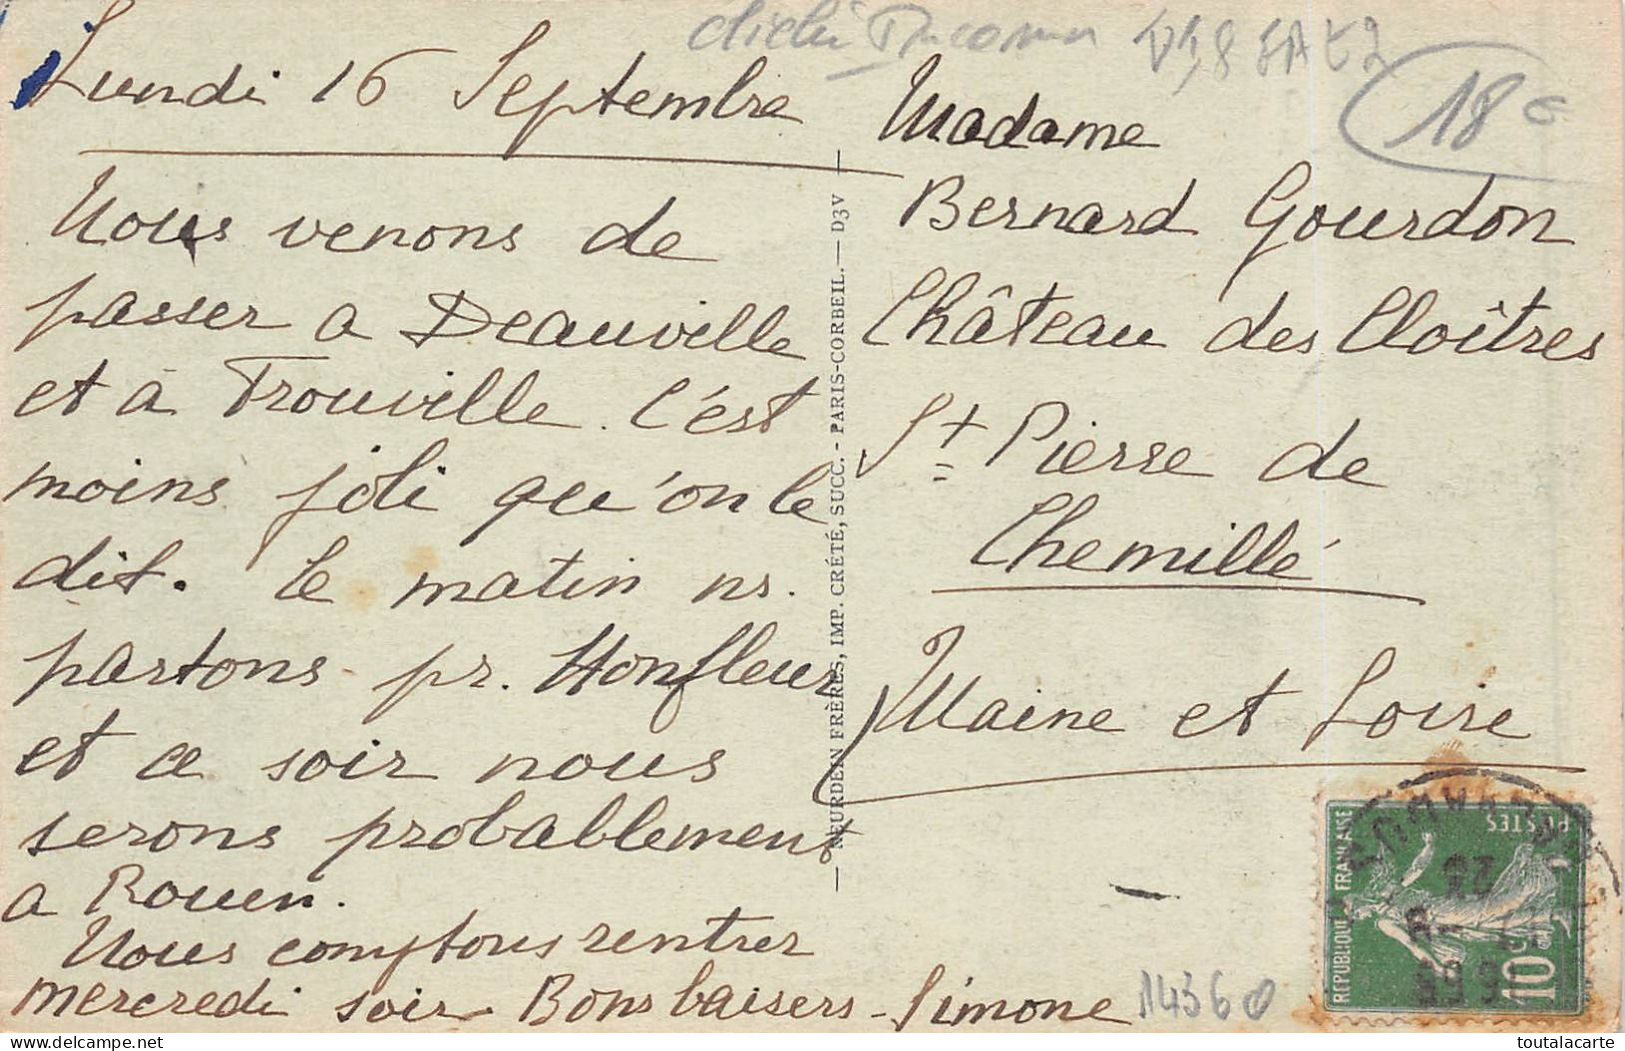 Lundi 16 Septembre
Nous venons de
passer a Deauville
et à Trouville. C'est
moins joli qu'on le
dit. Le matin ns.
partons pr. Honfleur
et ce soir nous
serons probablement
a Rouen.
Nous comptons rentrer
mercredi soir Bons baisers - Simone
NEURDEIN FRÈRES, IMP. CRÉTÉ, SUCC. - PARIS-CORBEIL. — D3V
cliché
18 €
Madame
Bernard Gourdon
Château des Cloîtres
St Pierre de
Chemillé
Maine et Loire
14360
REPUBLIQUE FRANÇAISE
POSTES
10c
toutalacarte